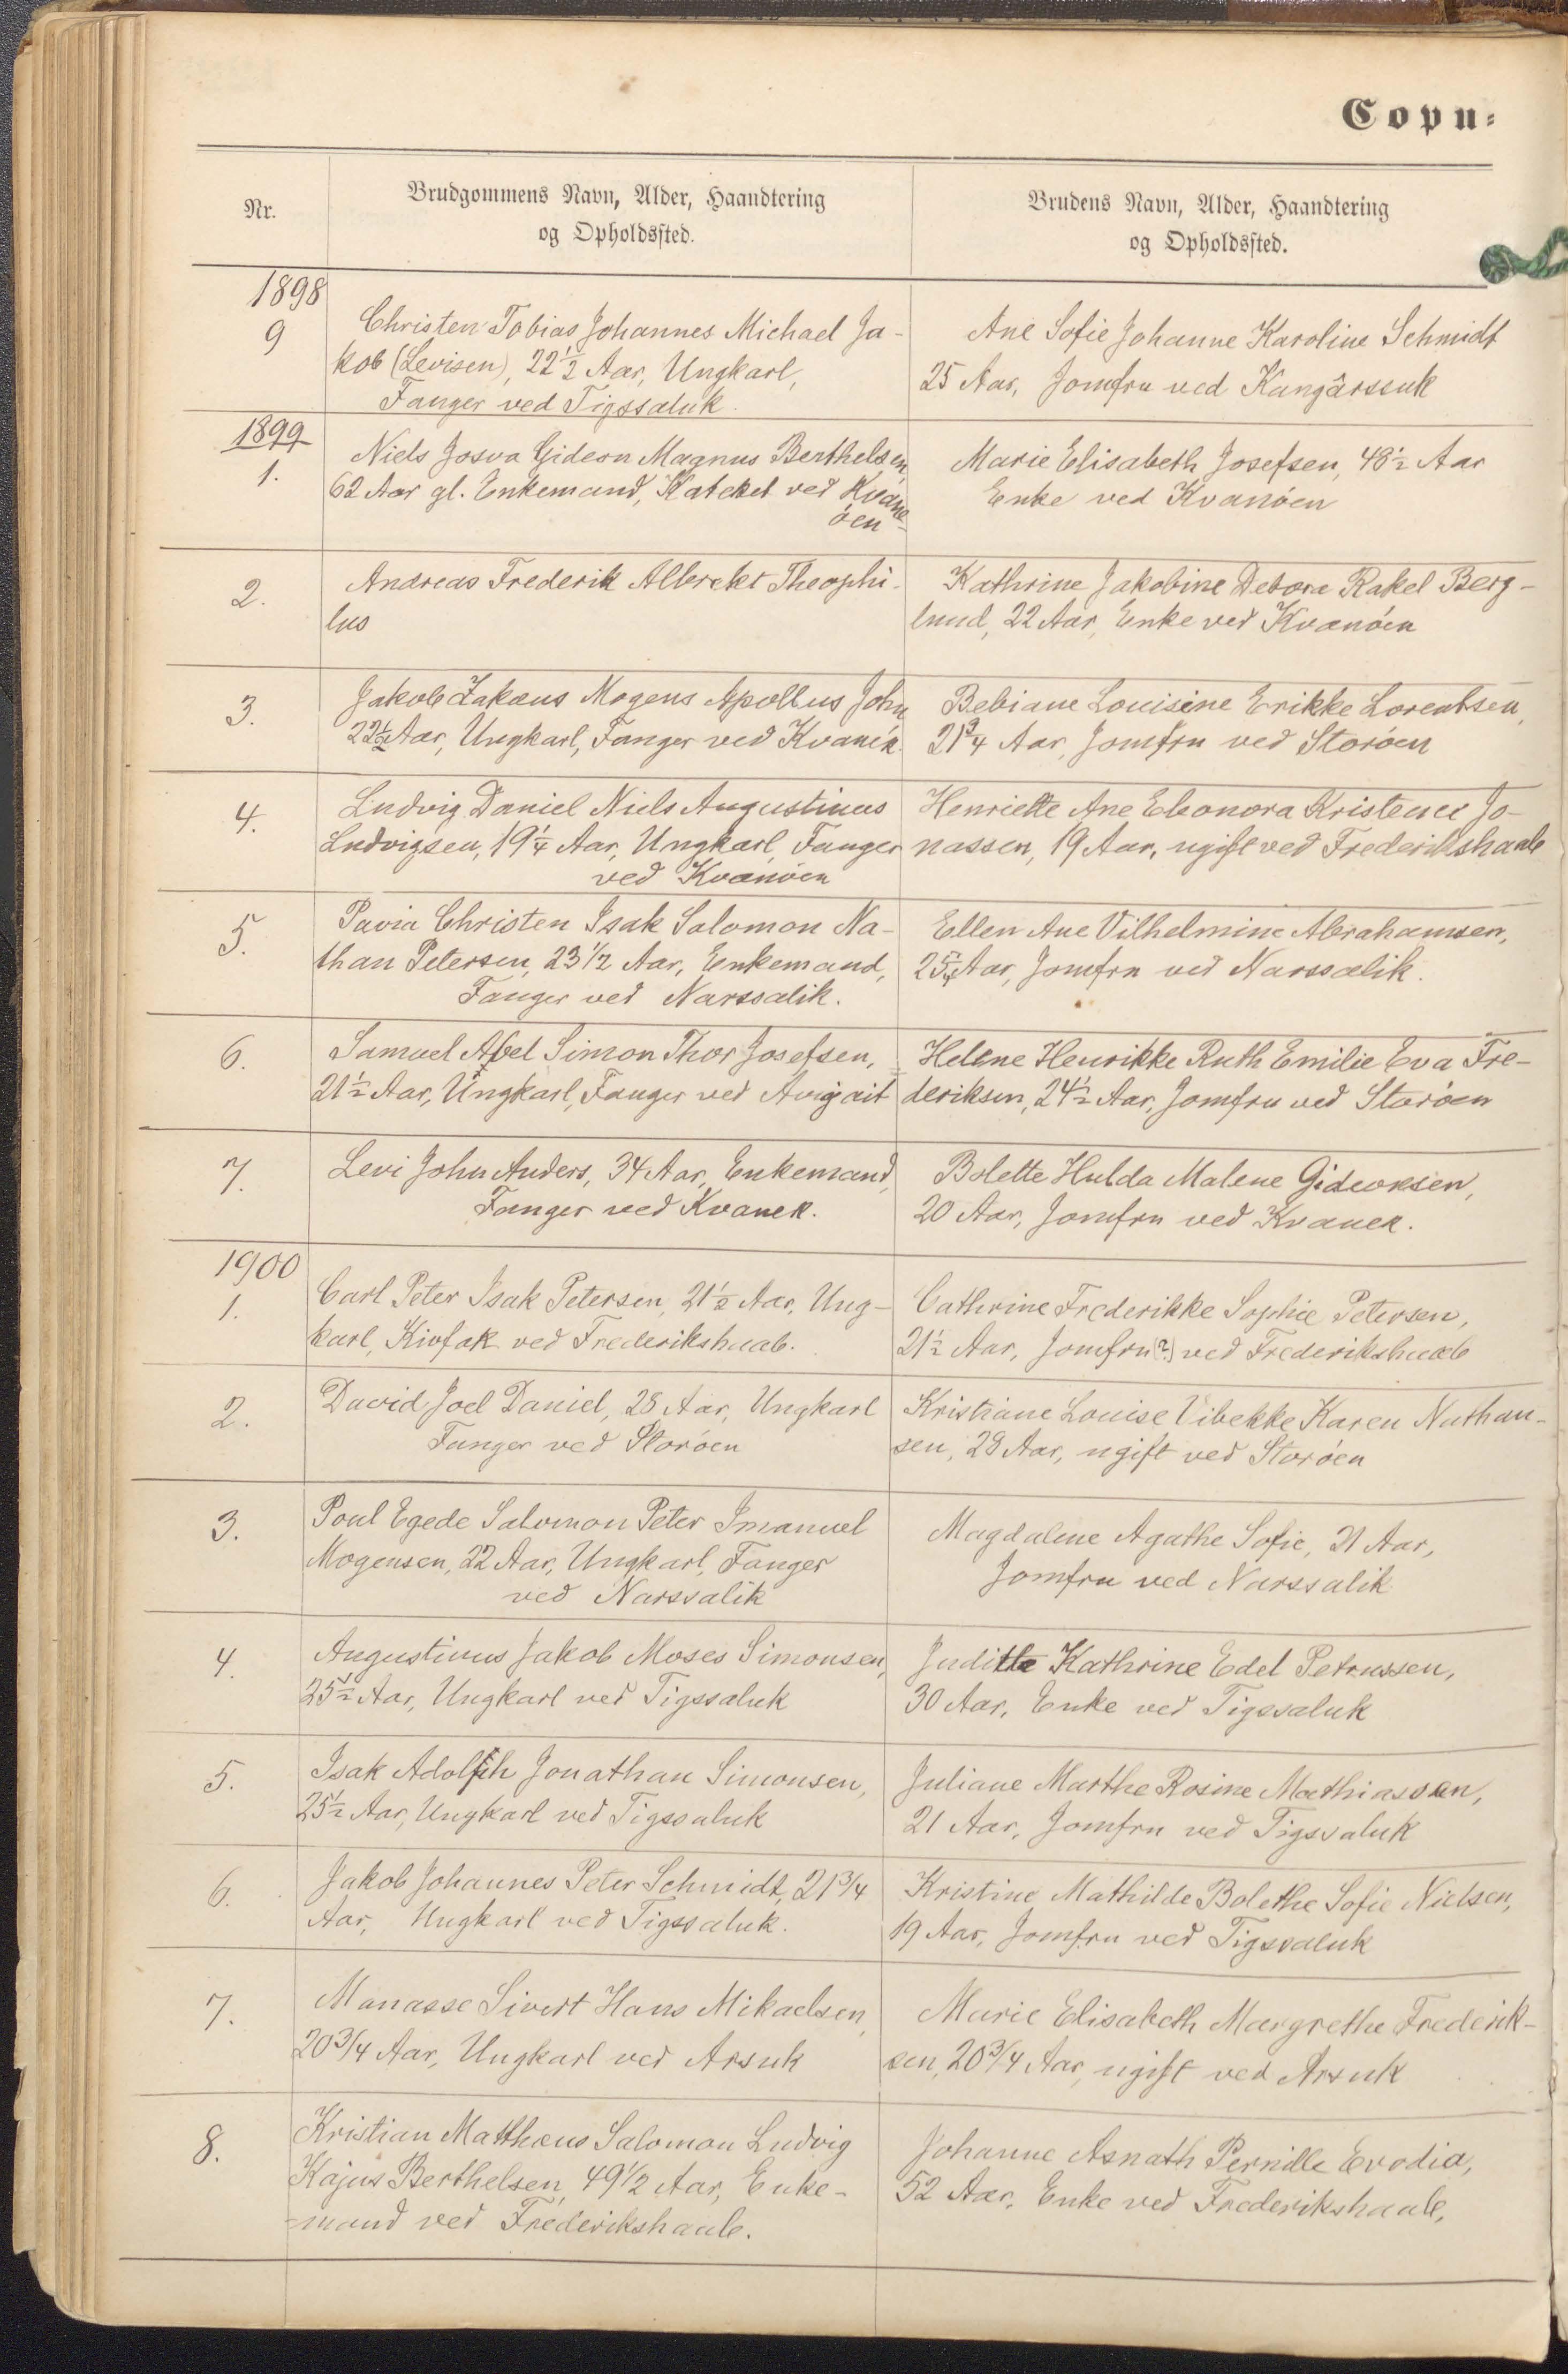 Copu-
Nr.
Brudgommens Navn, Alder, Haandtering
og Opholdssted.
Brudens Navn, Alder, Haandtering
og Opholdssted.
1898
9
Christen Tobias Johannes Michael Ja-
kob (Levisen), 22 1/2 Aar, Ungkarl,
Fanger ved Tigssaluk
Ane Sofie Johanne Karoline Schmidt
25 Aar, Jomfru ved Kangârssuk
1899
1.
Niels Josva Gideon Magnus Berthelsen,
62 Aar gl. Enkemand, Kateket ved Kvane-
öen
Marie Elisabeth Josefsen, 48 1/2 Aar
Enke ved Kvanöen
2.
Andreas Frederik Albrekt Theophi-
lus
Kathrine Jakobine Debora Rakel Berg-
lund, 22 Aar, Enke ved Kvanöen
3.
Jakob Zakæus Mogens Apollus John
22 1/2 Aar, Ungkarl, Fanger ved Kvanen.
Bebiane Louisine Erikke Lorentsen,
21 3/4 Aar, Jomfru ved Storöen
4.
Ludvig Daniel Niels Augustinus
Ludvigsen, 19 1/4 Aar, Ungkarl, Fanger
ved Kvanöen
Henriette Ane Eleonora Kristence Jo-
nassen, 19 Aar, ugift ved Frederikshaab
5.
Pavia Christen Isak Salomon Na-
than Petersen, 23 1/2 Aar, Enkemand,
Fanger ved Narssalik.
Ellen Ane Vilhelmine Abrahamsen,
Aar, Jomfru ved Narssalik.
6.
Samuel Abel Simon Thor Josefsen,
21 1/2 Aar, Ungkarl, Fanger ved Avigait
Helene Henrikke Ruth Emilie Eva Fre-
deriksen, 24 1/2 Aar, Jomfru ved Storöen
7.
Levi John Anders, 34 Aar, Enkemand,
Fanger ved Kvanen.
Bolette Hulda Malene Gideonsen,
20 Aar, Jomfru ved Kvanen.
1900
1.
Carl Peter Isak Petersen, 21 1/2 Aar, Ung-
karl, Kivfak ved Frederikshaab.
Cathrine Frederikke Sophie Petersen,
21 1/2 Aar, Jomfru (?) ved Frederikshaab
2.
David Joel Daniel, 28 Aar, Ungkarl
Fanger ved Storöen
Kristiane Louise Vibekke Karen Nathan-
sen, 28 Aar, ugift ved Storöen
3.
Poul Egede Salomon Peter Imanuel
Mogensen, 22 Aar, Ungkarl, Fanger
ved Narssalik
Magdalene Agathe Sofie, 21 Aar,
Jomfru ved Narssalik
4.
Augustinus Jakob Moses Simonsen,
25 1/2 Aar, Ungkarl ved Tigssaluk
Judithe Kathrine Edel Petrussen,
30 Aar, Enke ved Tigssaluk
5.
Isak Adolph Jonathan Simonsen,
25 1/2 Aar, Ungkarl ved Tigssaluk
Juliane Marthe Rosine Mathiassen,
21 Aar, Jomfru ved Tigssaluk
6.
Jakob Johannes Peter Schmidt, 21 3/4
Aar, Ungkarl ved Tigssaluk.
Kristine Mathilde Bolethe Sofie Nielsen,
19 Aar, Jomfru ved Tigssaluk
7.
Manasse Sivert Hans Mikaelsen,
20 3/4 Aar, Ungkarl ved Arsuk
Marie Elisabeth Margrethe Frederik-
sen, 20 3/4 Aar, ugift ved Arsuk
8.
Kristian Matthæus Salomon Ludvig
Kajus Berthelsen, 49 1/2 Aar, Enke-
=mand ved Frederikshaab.
Johanne Asnath Pernille Evodia,
52 Aar, Enke ved Frederikshaab,